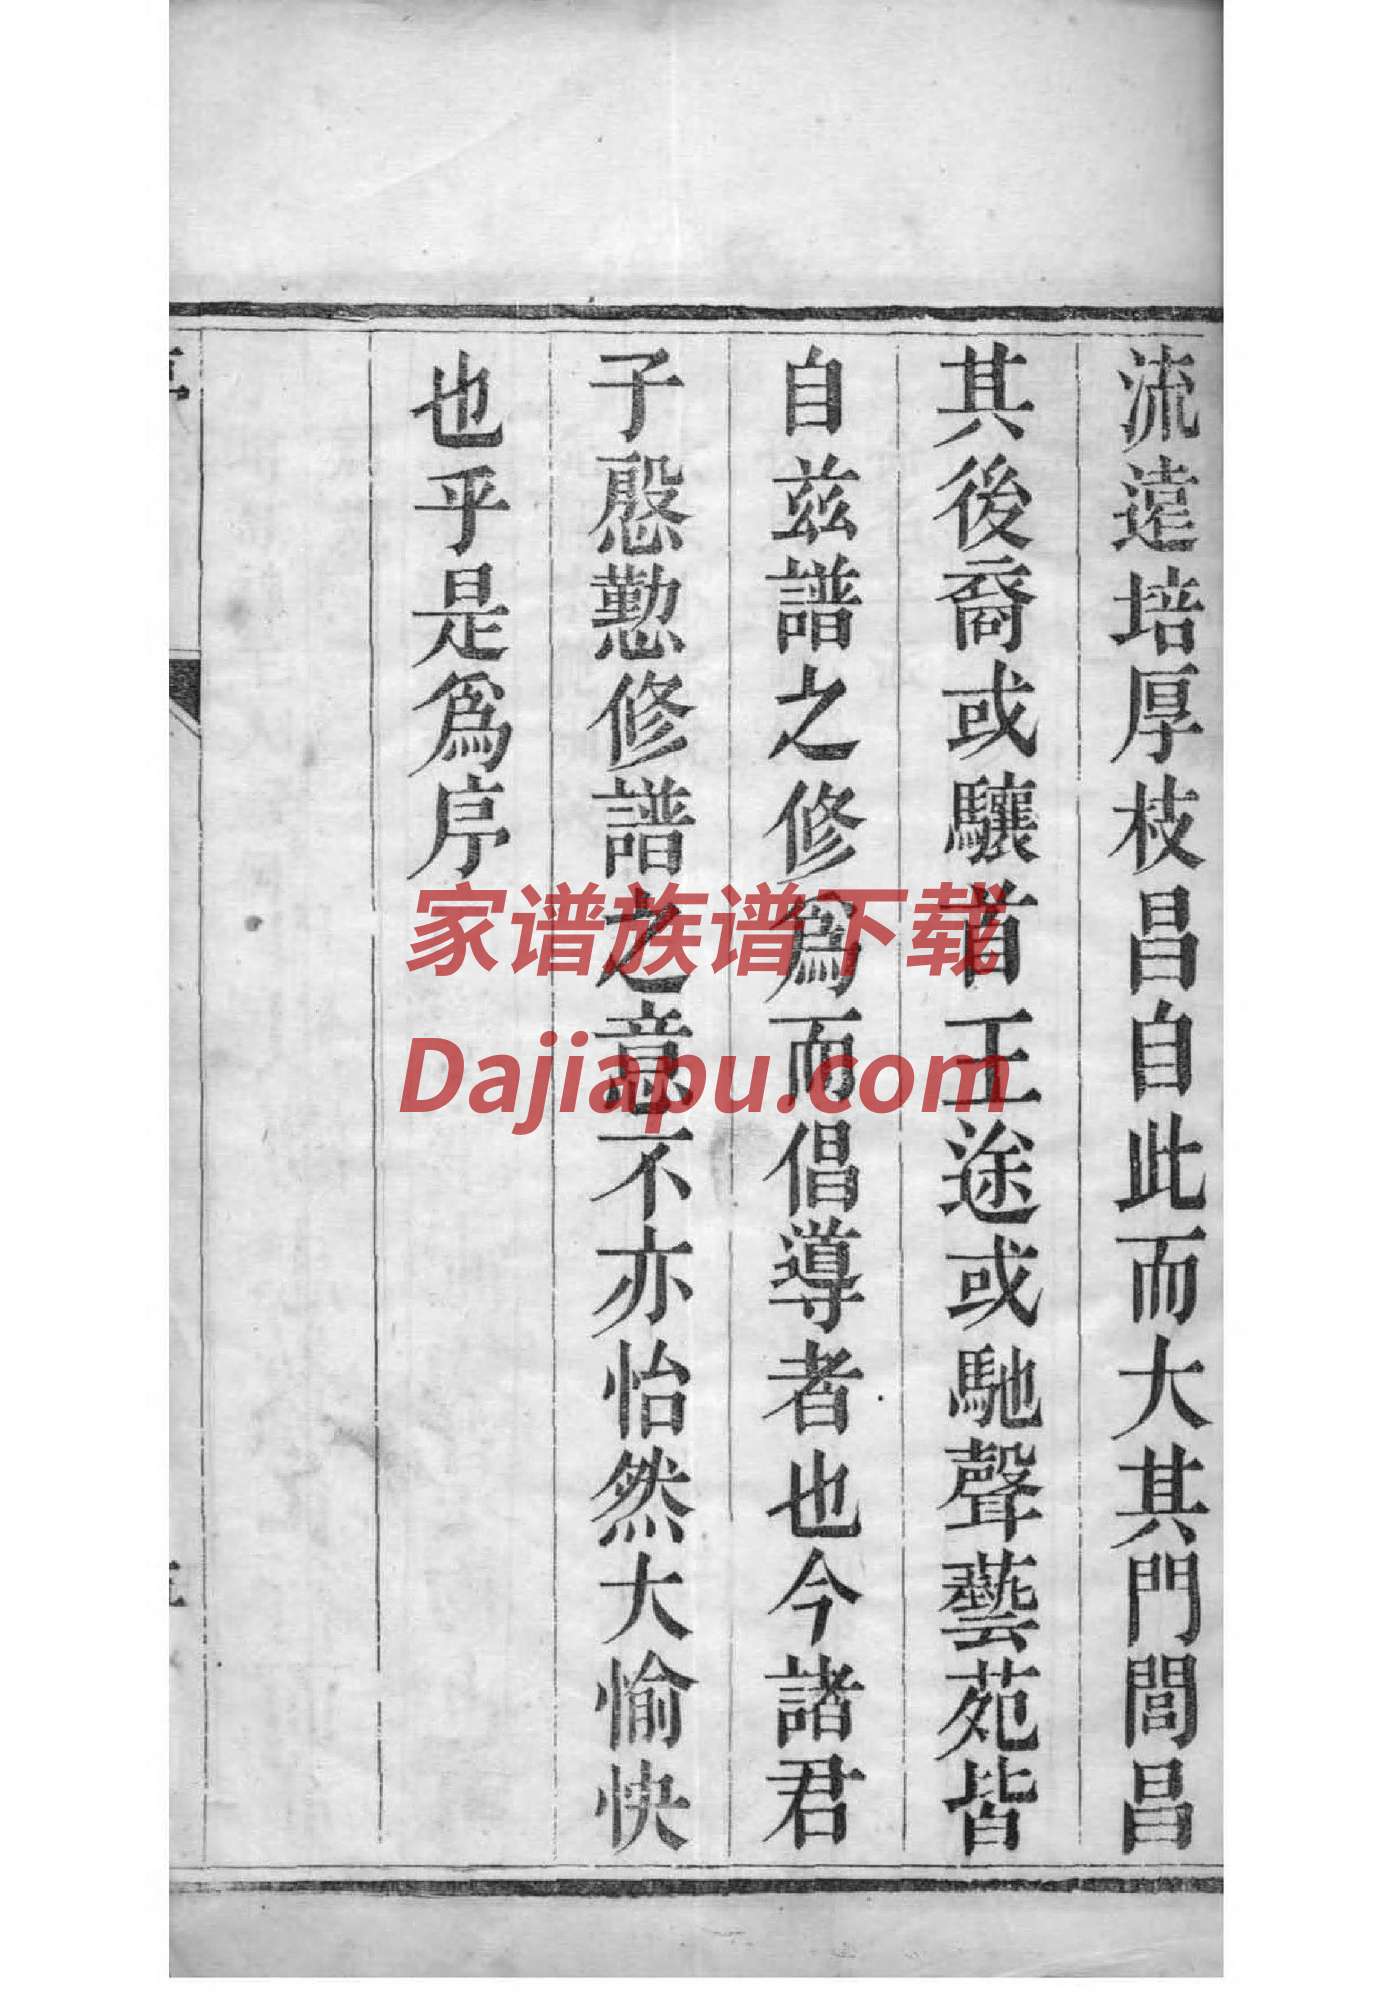 流遠培厚枝昌自此而大其門閭昌
其後裔或驤首王途或馳聲藝苑皆
自茲譜之修爲而倡導者也今諸君
子慇懃修譜之意不亦怡然大愉快
也乎是爲序
家谱族谱下载
Dajiapu.com